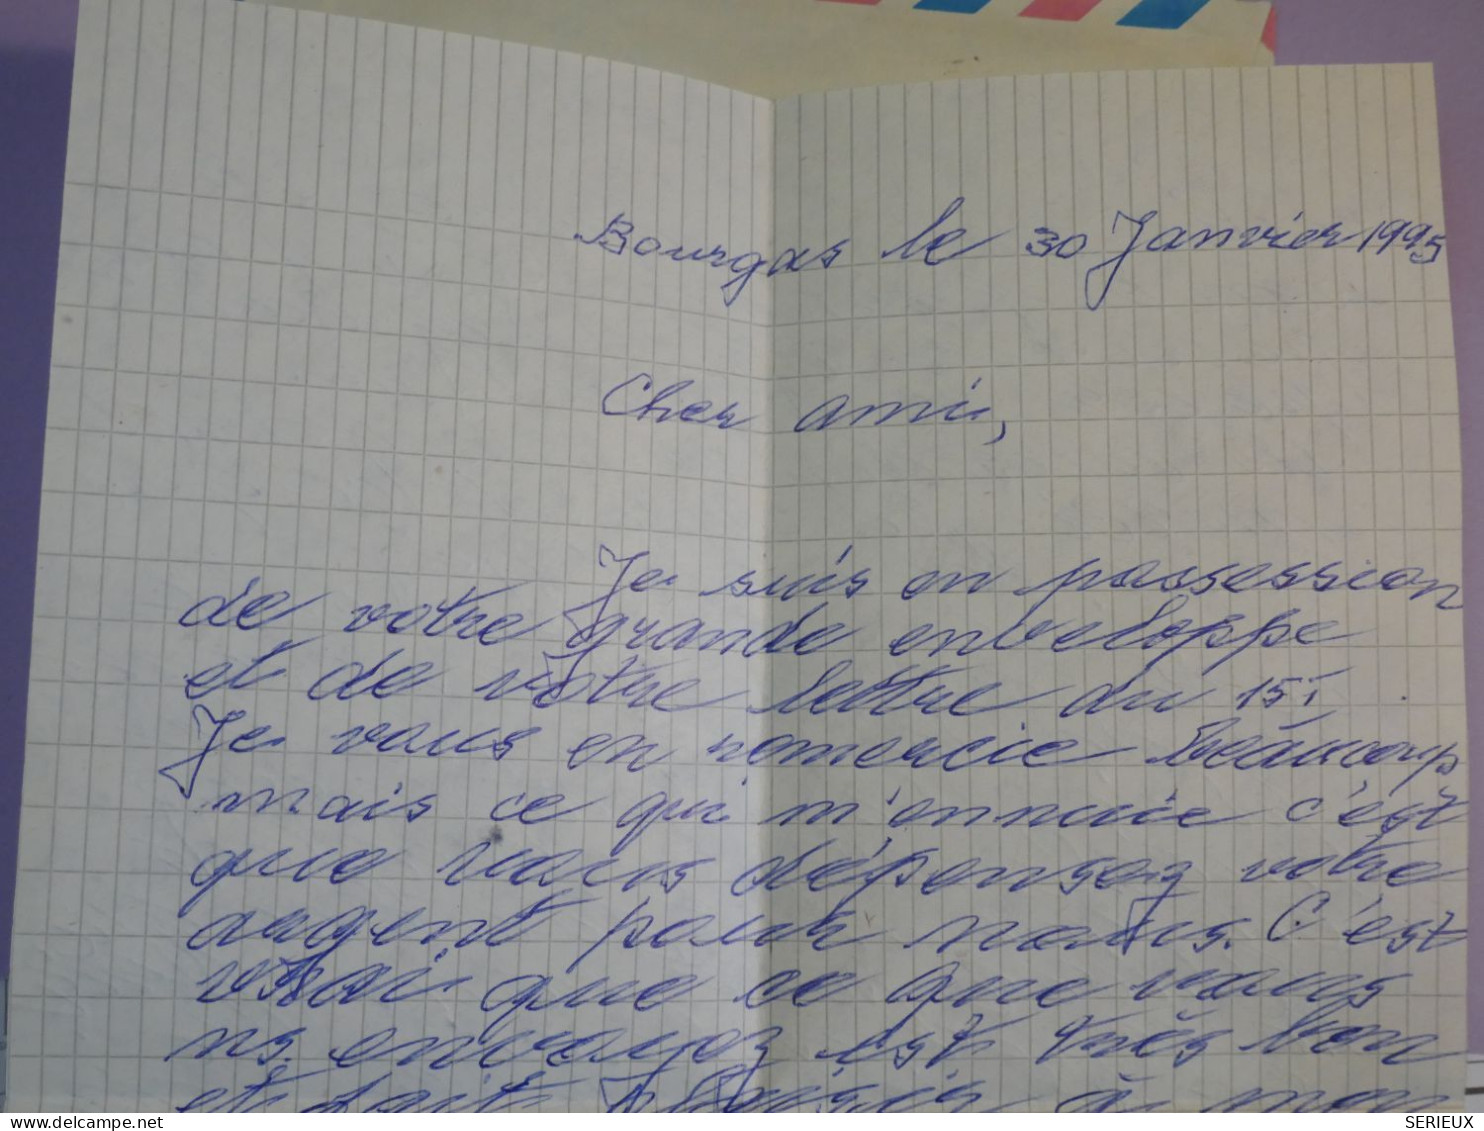 Bourgas le 30 Janvier 1995
Cher ami,
Je suis en possession
de votre grande enveloppe
et de votre lettre du 15 I
Je vous en remercie beaucoup
mais ce qui m'ennuie c'est
que vous dépensez votre
argent pour nous. C'est
vrai que ce que vous
ns. envoyez est très bon
et fait plaisir à mon
SERIEUX
www.delcampe.net